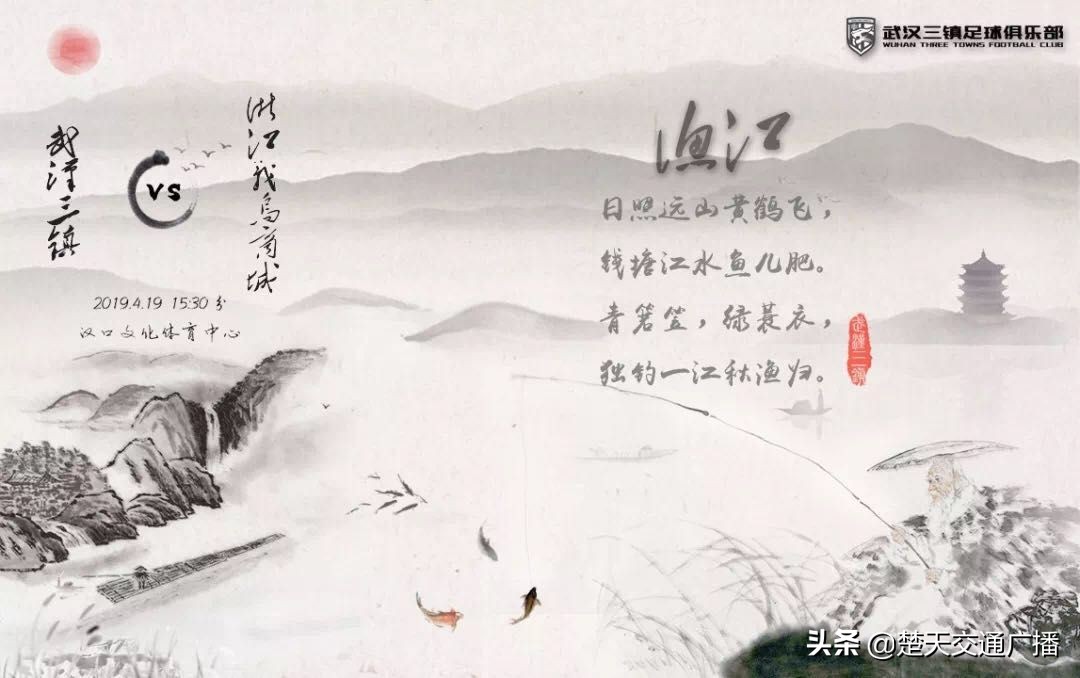 武汉三镇足球俱乐部
WUHAN THREE TOWNS FOOTBALL CLUB
武漢三镇
VS
浙江毅腾商城
2019.4.19 15:30分
汉口文化体育中心
渔江
日照远山黄鹤飞，
钱塘江水鱼儿肥。
青箬笠，绿蓑衣，
独钓一江秋渔归。
武漢三鎮
头条 @楚天交通广播